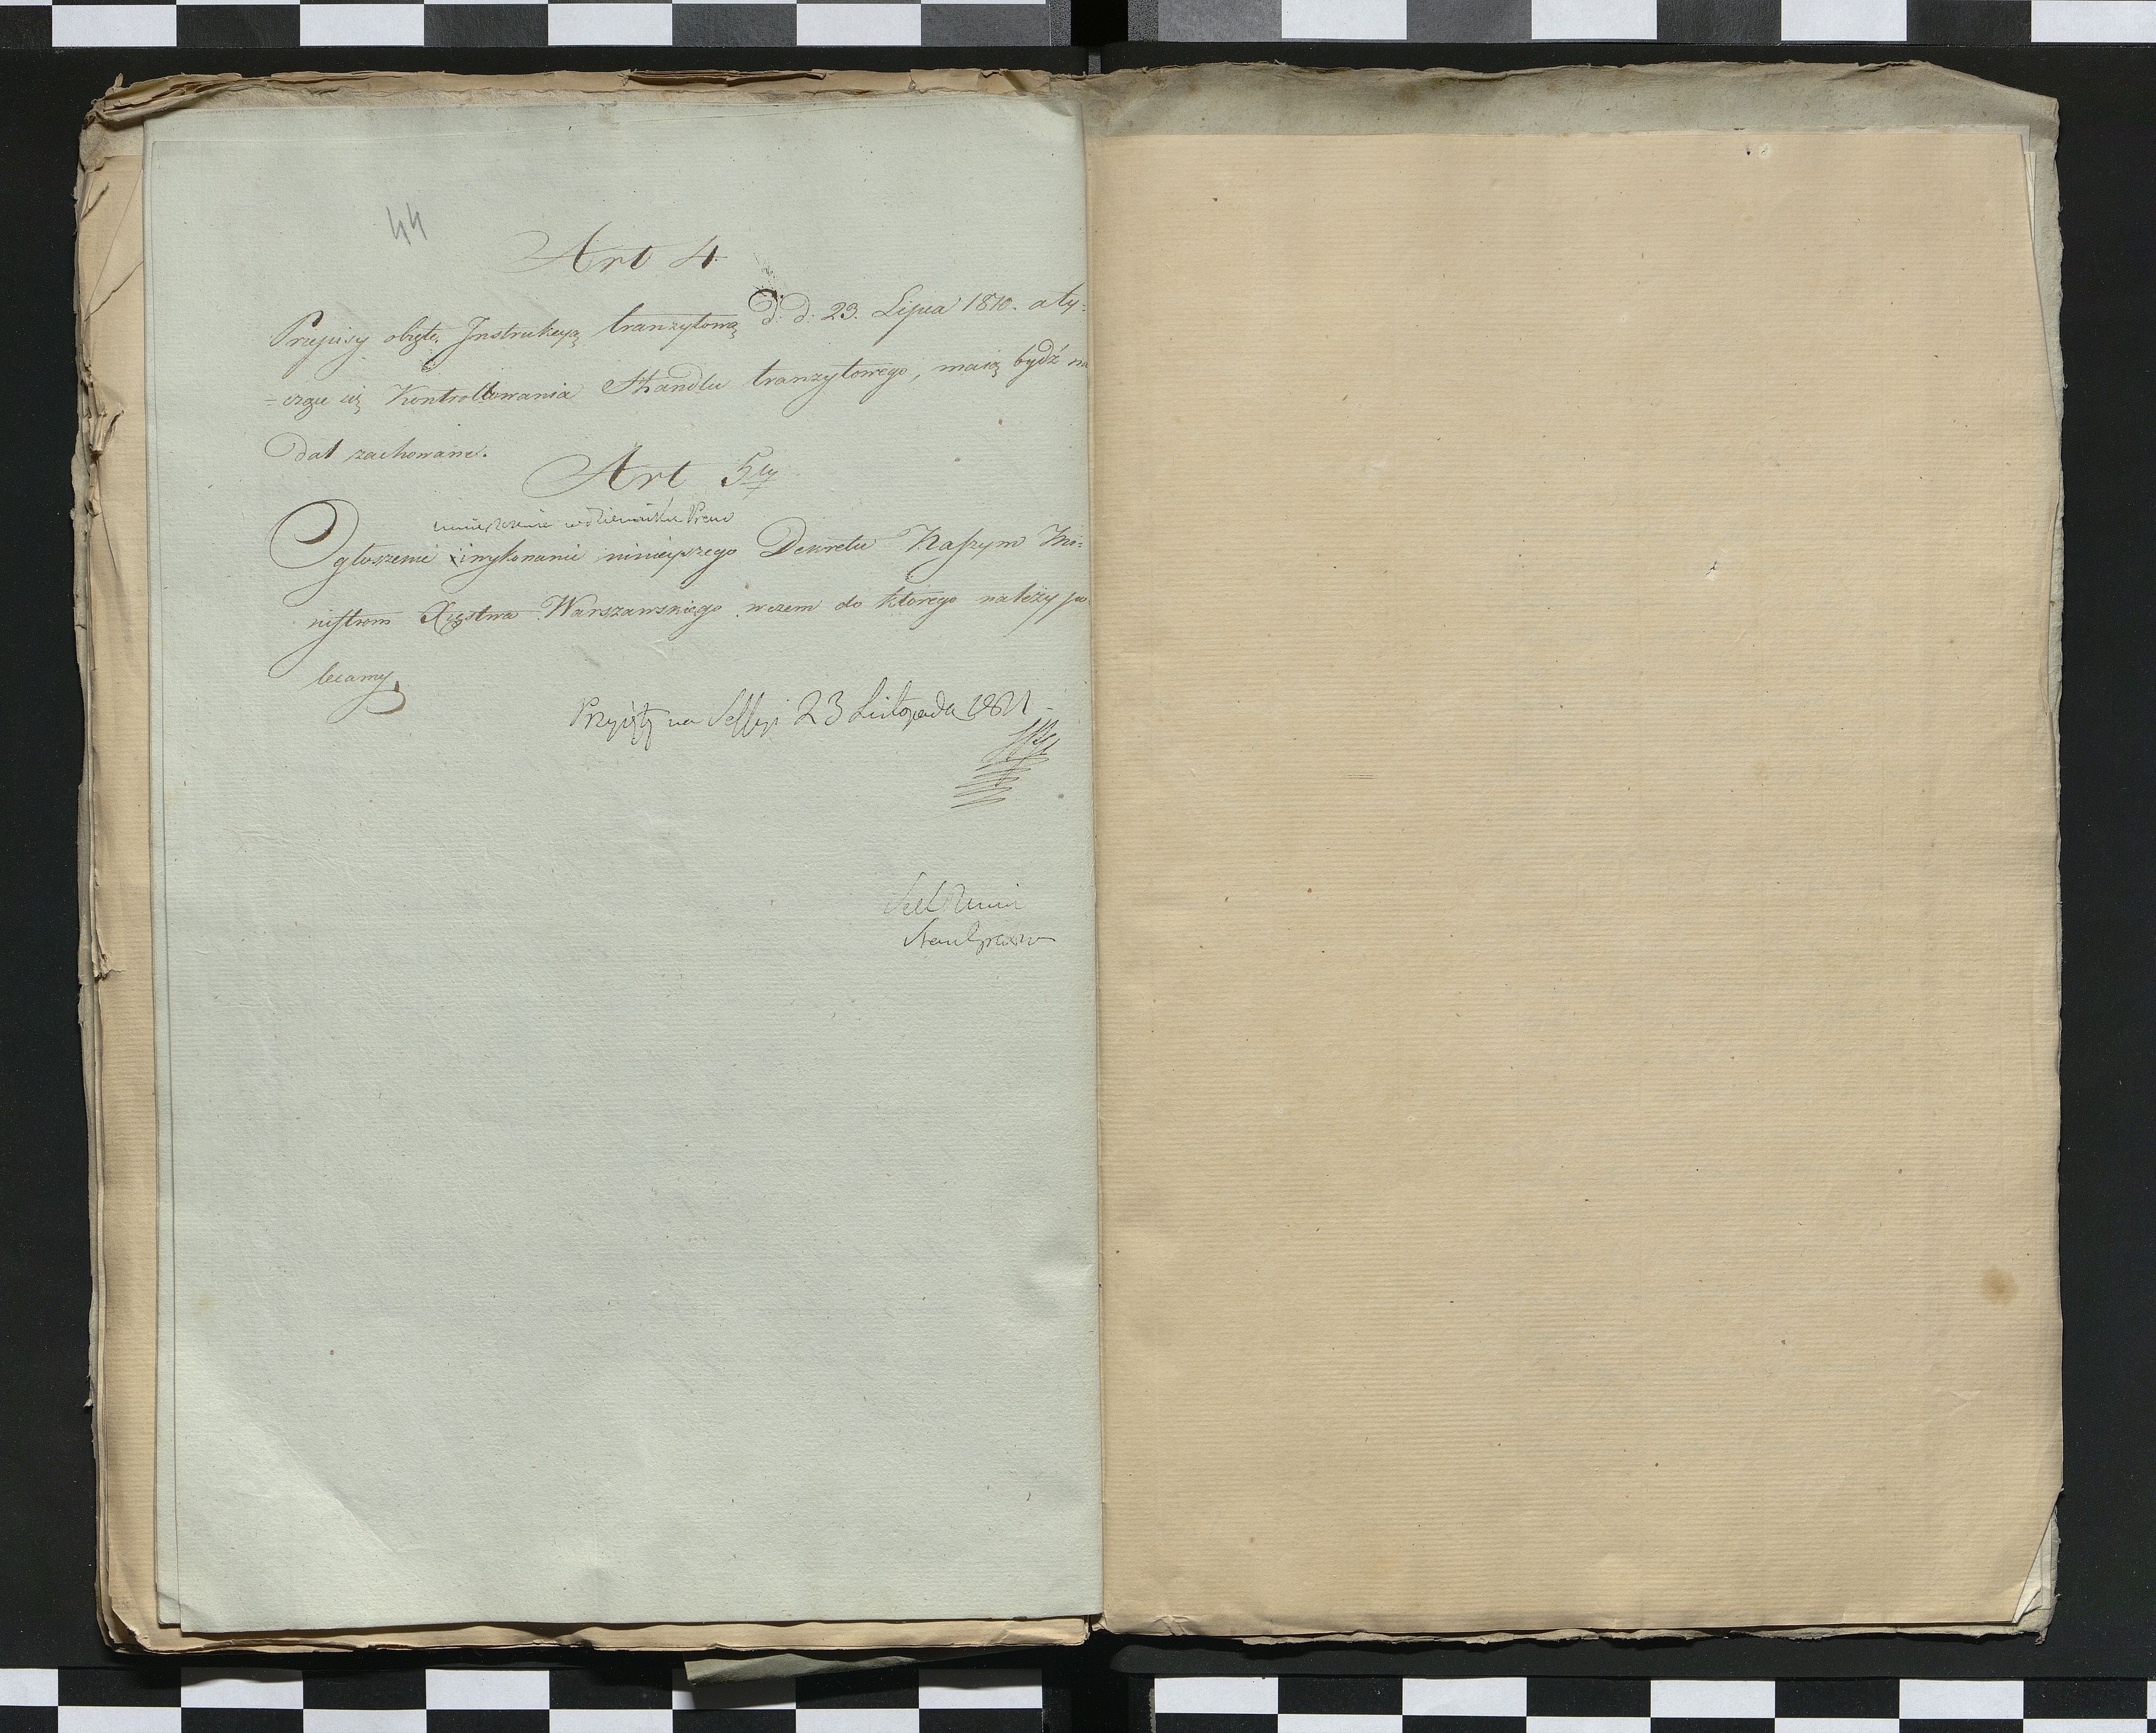 44
Art 4
Przepisy obięte Instrukcyą tranzytową d. d. 23. Lipca 1810. a ty-
=czące się Kontrollowania Handlu tranzytowego, maią bydź na
dal zachowane.
Art 5ty
umieszczenie w dzienniku Praw
Ogłoszenie i wykonanie ninieyszego Dekretu Naszym Mi=
nistrom Xięstwa Warszawskiego wczem do którego należy po
lecamy
Przyięty na Sessyi 23 Listopada 1811